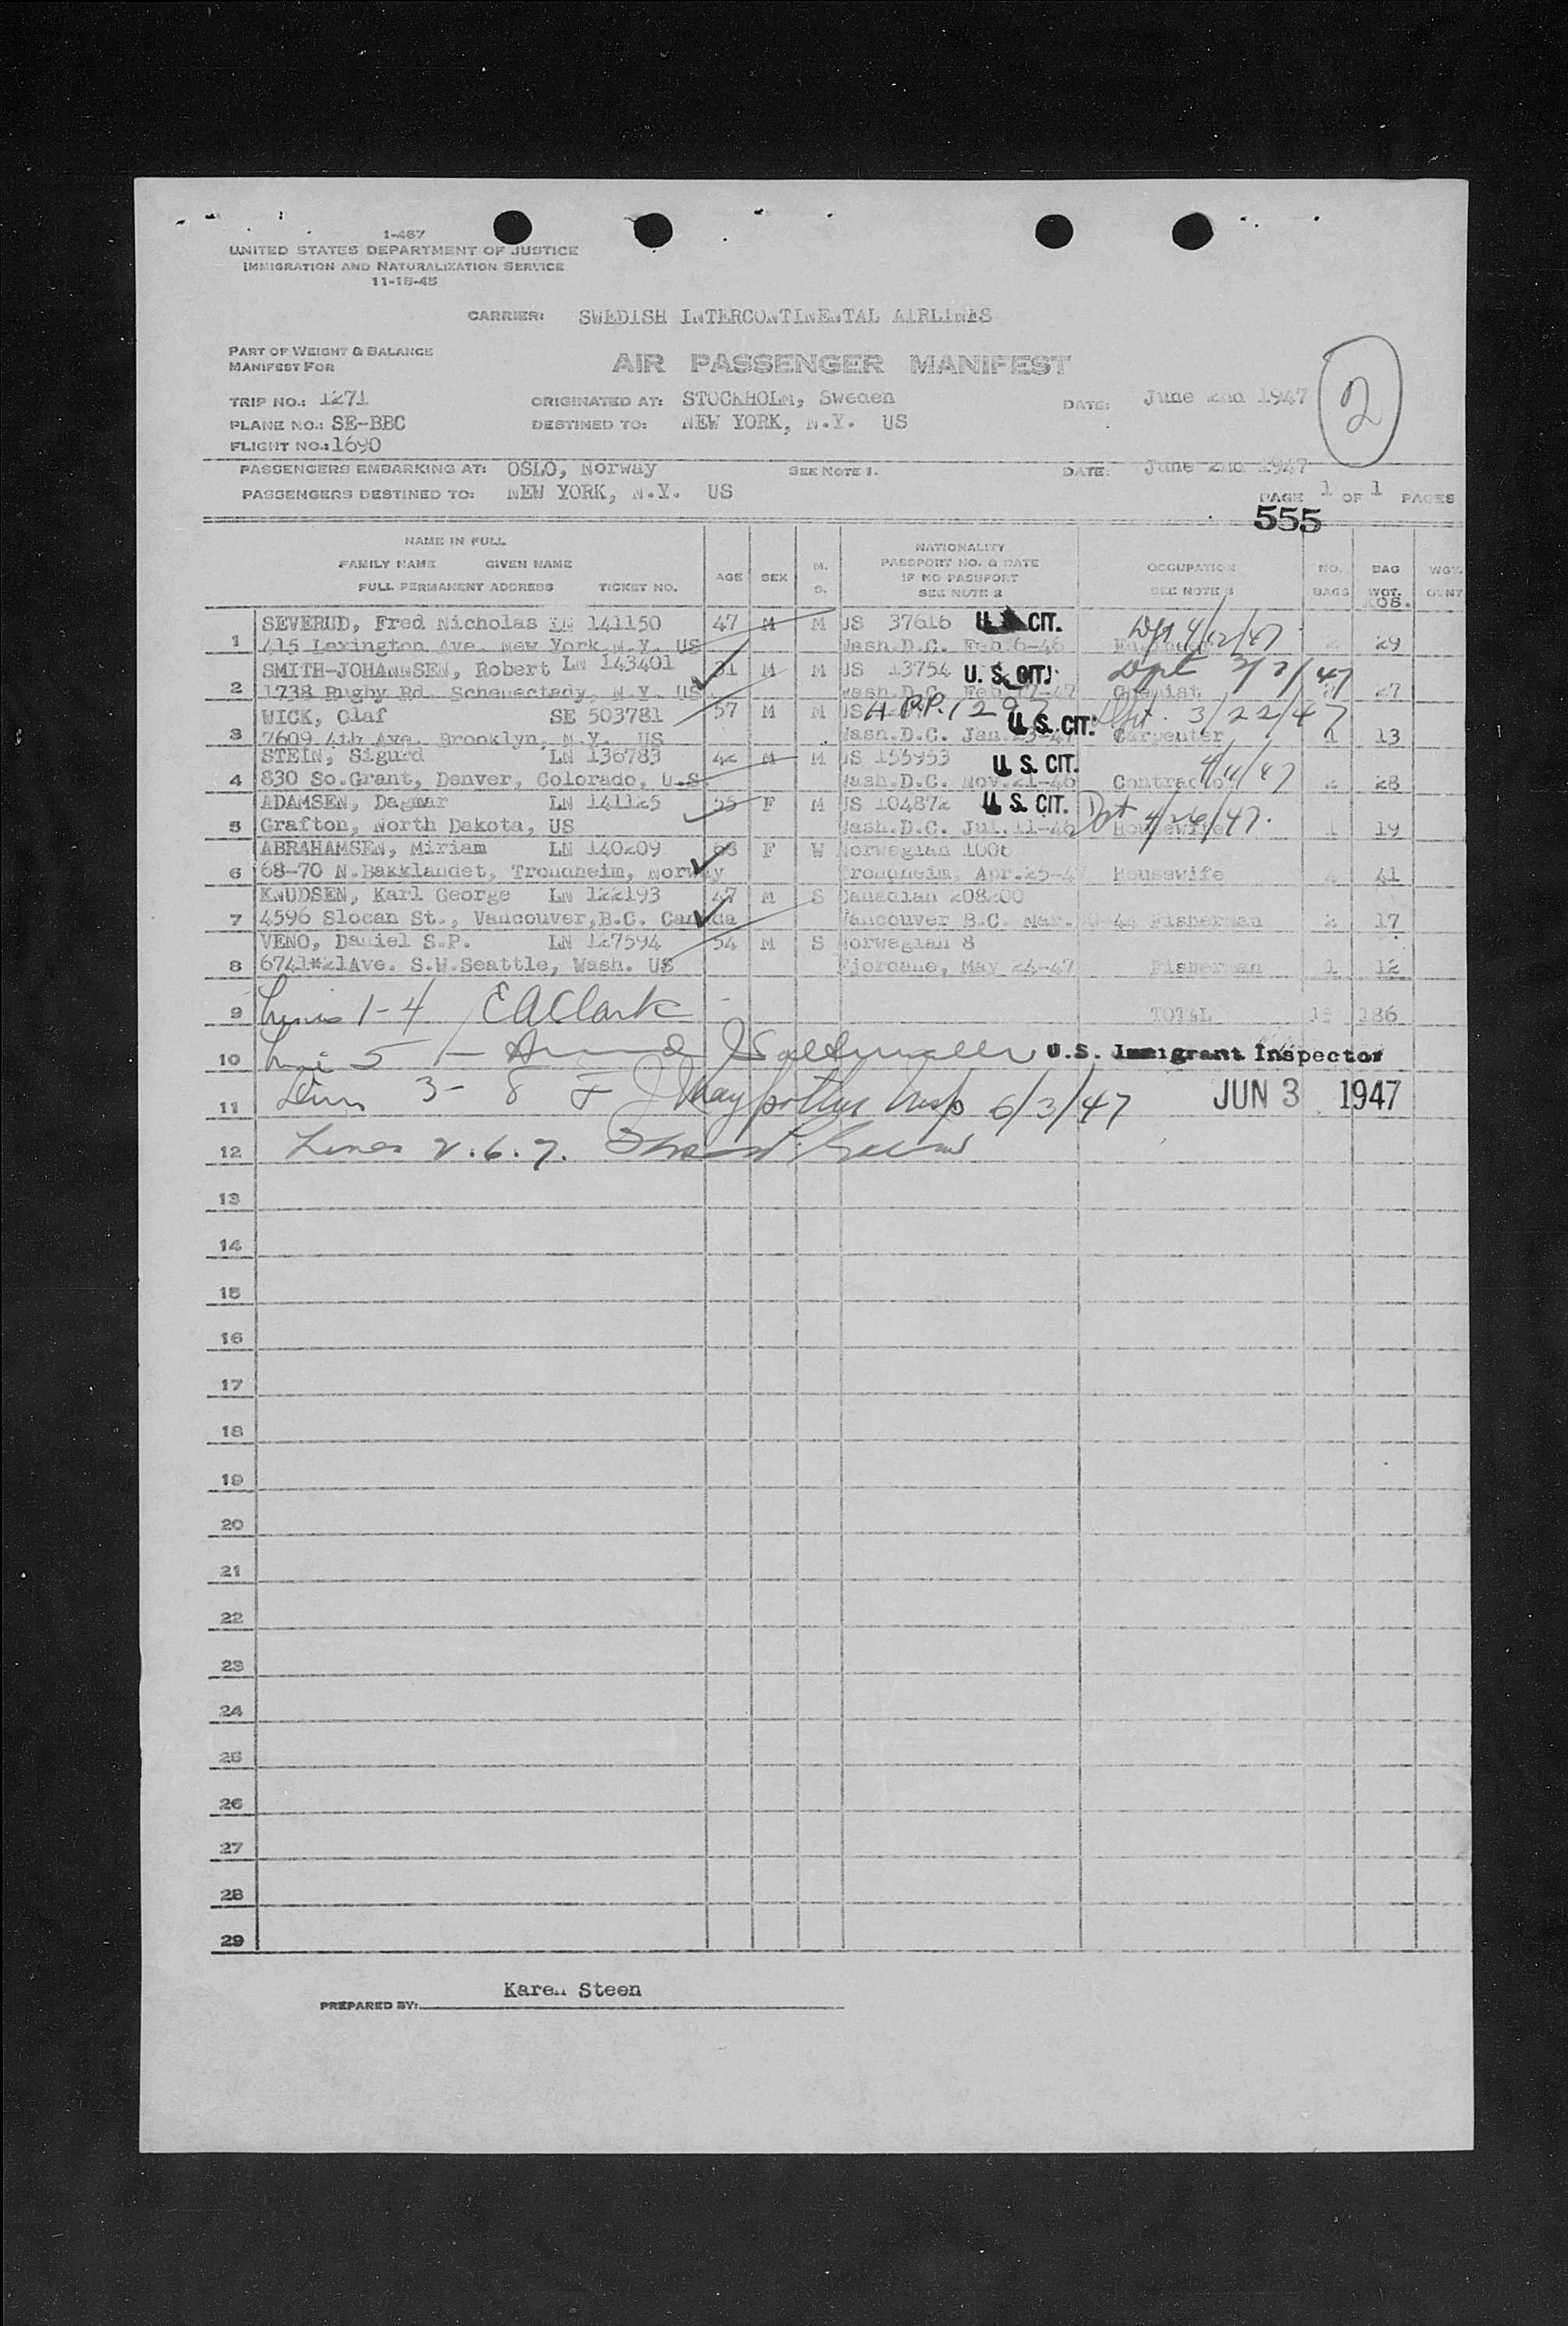 1-467
UNITED STATES DEPARTMENT OF JUSTICE
IMMIGRATION AND NATURALIZATION SERVICE
11-15-45
CARRIER: SWEDISH INTERCONTINENTAL AIRLINES
PART OF WEIGHT & BALANCE
MANIFEST FOR
AIR PASSENGER MANIFEST
2
TRIP NO.: 1271 ORIGINATED AT: STOCKHOLM, Sweden DATE: June 2nd 1947
PLANE NO.: SE-BBC DESTINED TO: NEW YORK, N.Y. US
FLIGHT NO.: 1690
PASSENGERS EMBARKING AT: OSLO, Norway SEE NOTE 1. DATE: June 2nd 1947
PASSENGERS DESTINED TO: NEW YORK, N.Y. US
PAGE 1 OF 1 PAGES
555
NAME IN FULL
FAMILY NAME GIVEN NAME
FULL PERMANENT ADDRESS TICKET NO.
AGE SEX M. S.
NATIONALITY
PASSPORT NO. & DATE
IF NO PASSPORT
SEE NOTE 2
OCCUPATION
SEE NOTE 3
NO. BAGS
BAG WGT. KOS.
WGT.
SEVERUD, Fred Nicholas LN 141150 47 M M US 37616 U.S. CIT. Dpt 4/12/47
1 415 Lexington Ave. New York, N.Y. US Wash.D.C. Feb. 6-46 29
SMITH-JOHANNSEN, Robert LN 143401 31 M M US 13754 U. S. CIT. Dpt
2 1738 Rugby Rd. Schenectady, N.Y. US Wash.D.C. 27
WICK, Olaf SE 503781 57 M M US U. S. CIT. Dpt. 3/22/47
3 7609 4th Ave. Brooklyn, N.Y. US Wash.D.C. Jan. Carpenter 1 13
STEIN, Sigurd LN 136783 42 M M US 155953 U. S. CIT. 4/11/47
4 830 So.Grant, Denver, Colorado, U.S. Wash.D.C. Nov.21-46 Contractor 2 28
ADAMSEN, Dagmar LN 141125 55 F M US 104872 U. S. CIT. Dpt 4/26/47.
5 Grafton, North Dakota, US Wash.D.C. Jul.11-46 Housewife 1 19
ABRAHAMSEN, Miriam LN 140209 F W Norwegian 1006
6 68-70 N.Bakklandet, Trondheim, Norway Trondheim, Apr.25-47 Housewife 4 41
KNUDSEN, Karl George LN 122193 47 M S Canadian 208200
7 4596 Slocan St., Vancouver,B.C. Canada Vancouver B.C. Mar. -44 Fisherman 2 17
VENO, Daniel S.P. LN 127594 54 M S Norwegian 8
8 6741*21Ave. S.W.Seattle, Wash. US Fjordane, May 24-47 Fisherman 1 12
9 Lines 1-4 EAClark TOTAL 15 186
10 Line 5 - U.S. Immigrant Inspector
11 Lines 3- 8 Insp 6/3/47 JUN 3 1947
12 Lines 2.6.7.
13
14
15
16
17
18
19
20
21
22
23
24
25
26
27
28
29
PREPARED BY: Karen Steen